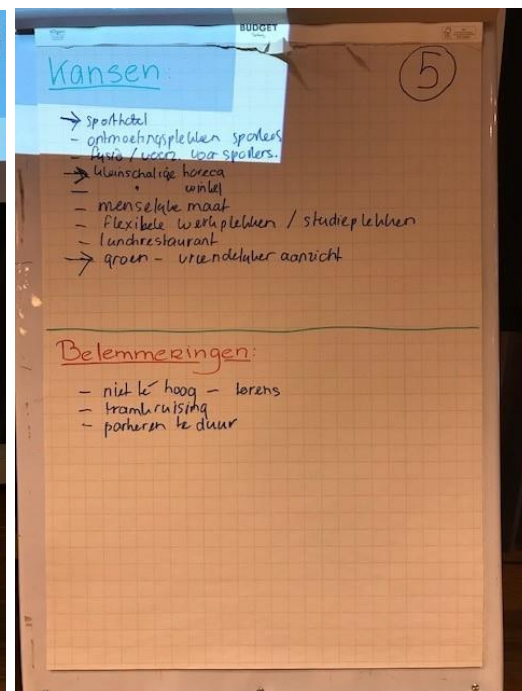 BUDGET
Kansen:
5
→ sporthotel
- ontmoetingsplekken sporters
- fysio / voorz. voor sporters.
→ kleinschalige horeca
- " winkel
- menselijke maat
- flexibele werkplekken / studieplekken
- lunchrestaurant
→ groen - vriendelijker aanzicht
Belemmeringen:
- niet té hoog - torens
- tramkruising
- parkeren te duur